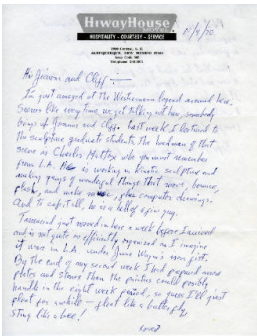 HIWAY HOUSE
HOSPITALITY - COURTESY - SERVICE
ALBUQUERQUE, NEW MEXICO
Hi and Cliff —
I'm just amazed at the
Seems like every time we get talking out here, somebody
brings up and Cliff. Last week I listened to
the sculpture graduate students. The headman of that
scene is Charles Mattox who you must remember
from L.A. He is working in kinetic sculpture and
making gangs of wonderful things that wave, bounce,
and make , plus computer drawings.
And to top it all, he is a hell of a fine guy.
Tamarind just moved in here a week before I arrived
and is not quite as efficiently organized as I imagine
it was in L.A. under June Wayne's own fist.
By the end of my second week I had prepared more
plates and stones than the printers could possibly
handle in the eight week period, so now I'll just
float for a while — float like a butterfly
sting like a bee!